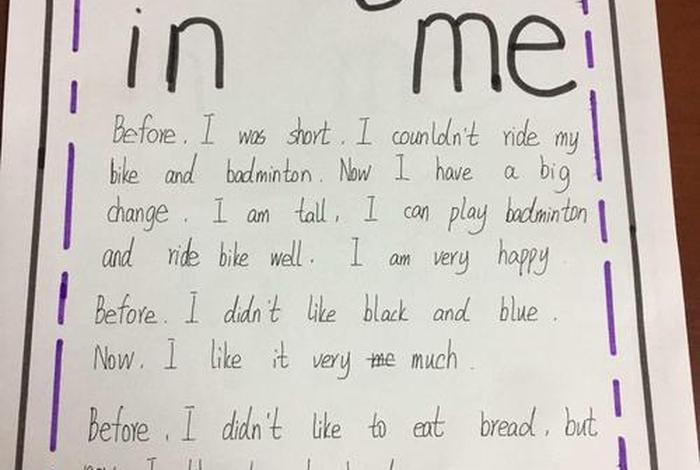 in me
Before, I was short. I counldn't ride my
bike and badminton. Now I have a big
change. I am tall, I can play badminton
and ride bike well. I am very happy.
Before. I didn't like black and blue.
Now. I like it very me much.
Before, I didn't like to eat bread, but